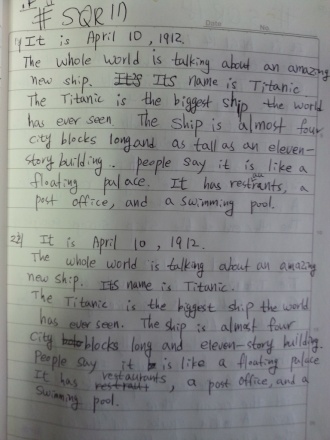 # SQR 11)
1) It is April 10, 1912.
The whole world is talking about an amazing
new ship. Its name is Titanic
The Titanic is the biggest ship the world
has ever seen. The ship is almost four
city blocks long and as tall as an eleven-
story building.. people say it is like a
floating palace. It has restrants, a
post office, and a swimming pool.
2) It is April 10, 1912.
The whole world is talking about an amazing
new ship. Its name is Titanic.
The Titanic is the biggest ship the world
has ever seen. The ship is almost four
City blocks long and eleven-story building.
People say it is like a floating palace
It has restaurants, a post office, and a
Swimming pool.